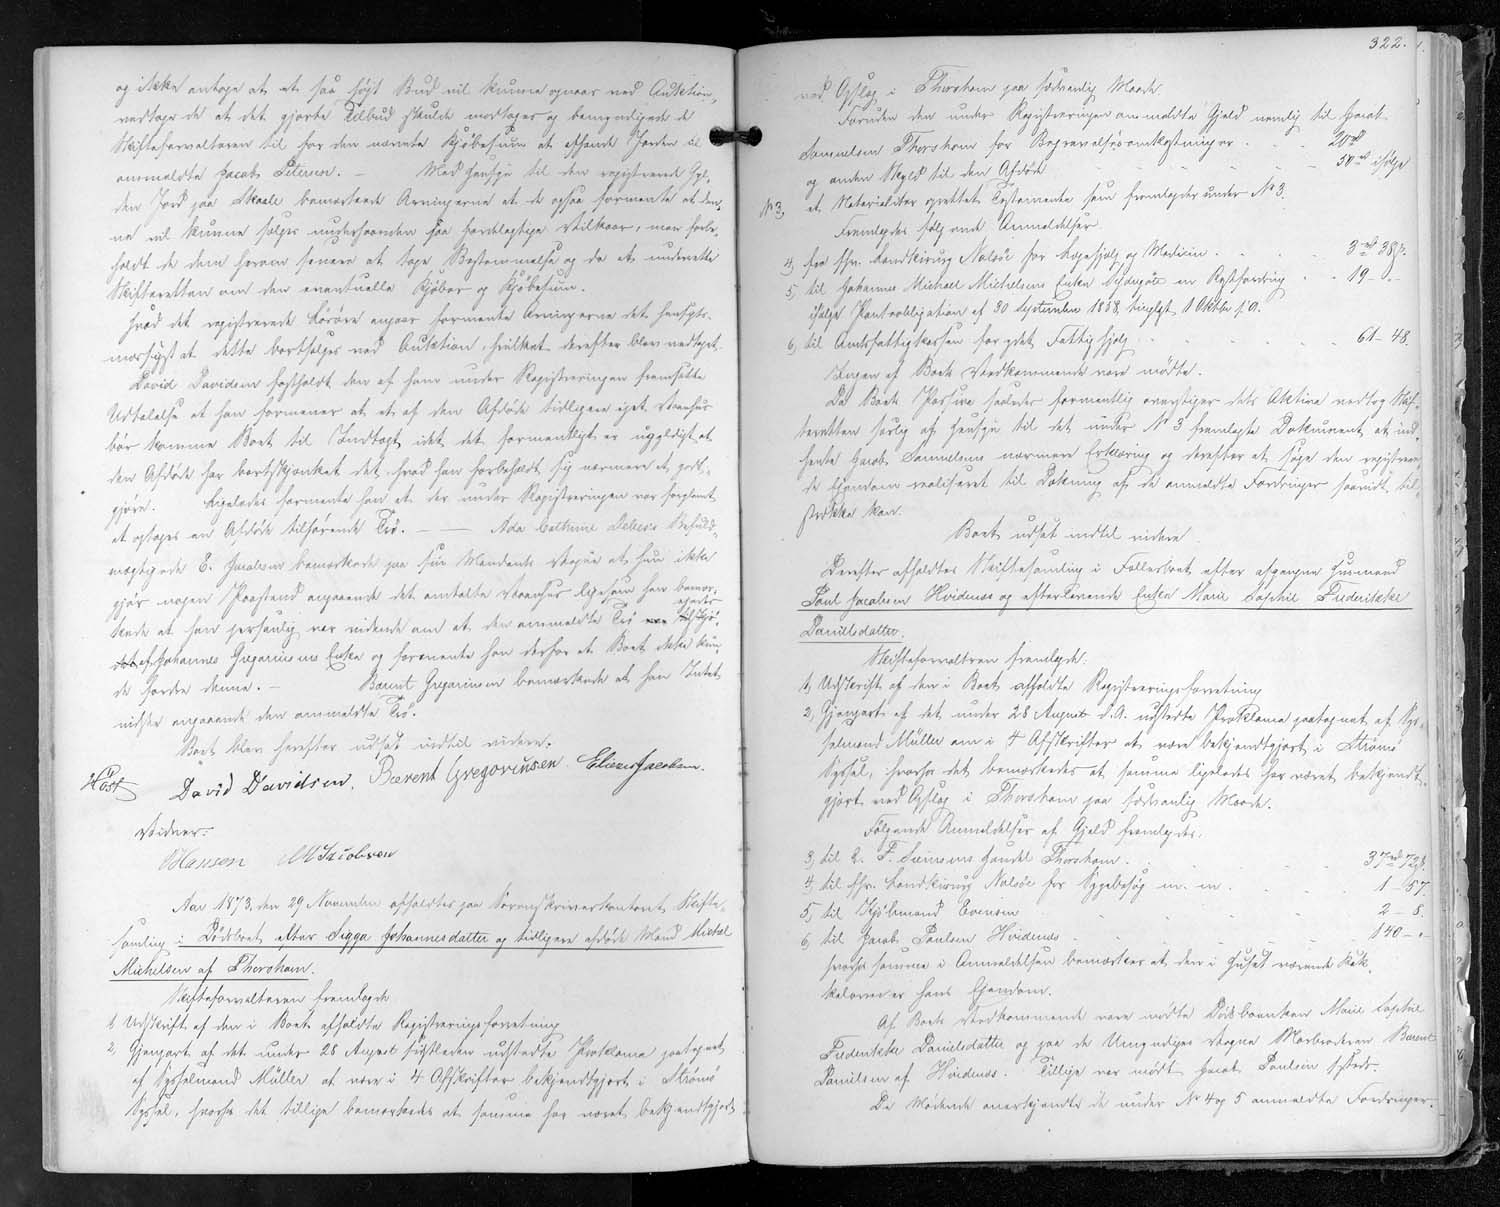 og ikke antoge at et saa højt Bud vil kunne opnaaes ved Auktion,
vedtoge de at det gjorte Tilbud skulde modtages og bemyndigede de
Skifteforvalteren til for den nævnte Kjøbesum at afhænde Jorden til
anmeldte Jacob Petersen. — Med Hensyn til den registrerede Gyl-
den Jord paa Skaale bemærkede Arvingerne at de ogsaa formente at den-
ne vil kunne sælges underhaanden paa fordelagtige Vilkaar, men forbe-
holdt de dem herom senere at tage Bestemmelse og da at underrette
Skifteretten om den eventuelle Kjøber og Kjøbesum.
Hvad det registrerede Løsøre angaar formente Arvingerne det hensigts-
mæssigst at dette bortsælges ved Auktion, hvilket derefter blev vedtaget.
David Davidsen fastholdt den af ham under Registreringen fremsatte
Udtalelse at han formener at et af den Afdøde tidligere ejet Vaanhus
bør komme Boet til Indtægt idet det formentligt er ugyldigt at
den Afdøde har bortskjænket det, hvad han forbeholdt sig nærmere at godt-
gjøre. Ligeledes formente han at der under Registreringen var forglemt
at optages en Afdøde tilhørende Ko. — — Ada Cathrine Debess Befuld-
mægtigede E. Jacobsen bemærkede paa sin Mandants Vegne at hun ikke
gjør nogen Paastand angaaende det omtalte Vaanhus ligesom han bemær-
kede at han personlig var vidende om at den anmeldte Ko ejedes
af Johannes Gregoriusens Enke og formente han derfor at Boet ikke kun-
de fordre denne. — Barent Gregorinsen bemærkede at han Intet
vidste angaaende den anmeldte Ko.
Boet blev herefter udsat indtil videre.
Høst David Davidsen. Baerent Gregoriusen Elieser Jacobsen.
Vidner:
Hansen M Jacobsen
Aar 1873, den 29 November afholdtes paa Sorenskriverkontoret Skifte-
samling i Dødsboet efter Sigga Johannesdatter og tidligere afdøde Mand Michal
Michelsen af Thorshavn.
Skifteforvalteren fremlagde
1, Udskrift af den i Boet afholdte Registreringsforretning
2, Gjenpart af det under 28 August sidstleden udstedte Proklama paategnet
af Sysselmand Müller at være i 4 Afskrifter bekjendtgjort i Strømø
Syssel, hvorhos det tillige bemærkedes at samme har været bekjendtgjort
322.
ved Opslag i Thorshavn paa sædvanlig Maade.
Foruden den under Registreringen anmeldte Gjæld nemlig til Jacob
Samuelsen Thorshavn for Begravelsesomkostninger . . . 20 rd
og anden Skyld til den Afdøde . . . 50 rd ifølge
No 3, et Notarialiter oprettet Testamente som fremlagdes under No 3.
Fremlagdes følgende Anmeldelser
4, fra Hr. Landkirurg Nolsøe for Lægehjælp og Medicin . . . 3 rd 38 ſ.
5, til Johannes Michael Michelsens Enke en Restfordring . . 19 - " -
ifølge Pantobligation af 30 September 1858, tinglyst 1 Oktbr s. A.
6, til Amtsfattigkassen for ydet Fattighjælp . . . 61 - 48.
Ingen af Boets Vedkommende vare mødte.
Da Boets Passiva saaledes formentlig overstiger dets Aktiva vedtog Skif-
teretten selv af Hensyn til det under No 3 fremlagte Dokument at ind-
hente Jacob Samuelsens nærmere Erklæring og derefter at søge den registrere-
de Ejendom realiseret til Dækning af de anmeldte Fordringer saavidt til-
strække kan.
Boet udsat indtil videre
Derefter afholdtes Skiftesamling i Fællesboet efter afgangne Husmand
Paul Jacobsen Hvidenæs og efterlevende Enke Marie Sophie Frederikke
Danielsdatter.
Skifteforvalteren fremlagde:
1, Udskrift af den i Boet afholdte Registreringsforretning
2, Gjenpart af det under 28 August d. A. udstedte Proklama paategnet af Sys-
selmand Müller om i 4 Afskrifter at være bekjendtgjort i Strømø
Syssel, hvorhos det bemærkedes at samme ligeledes har været bekjendt-
gjort ved Opslag i Thorshavn paa sædvanlig Maade.
Følgende Anmeldelser af Gjæld fremlagdes:
3, til E. F. Siemsens Handel Thorshavn. . . . 37 rd 72 ſ.
4, til Hr. Landkirurg Nolsøe for Sygebesøg m. m. . . . 1 - 57.
5, til Kjøbmand Evensen . . . 2 - 8.
6, til Jacob Paulsen Hvidenæs . . . 140 - "
hvorhos samme i Anmeldelsen bemærker at den i Huset værende Kak-
kelovn er hans Ejendom.
Af Boets Vedkommende vare mødte Dødsboenken Marie Sophie
Frederikke Danielsdatter og paa de Umyndiges Vegne Morbroderen Barent
Danielsen af Hvidenæs. Tillige var mødt Jacob Paulsen sysdr.
De Mødende anerkjendte de under No 4 og 5 anmeldte Fordringer.